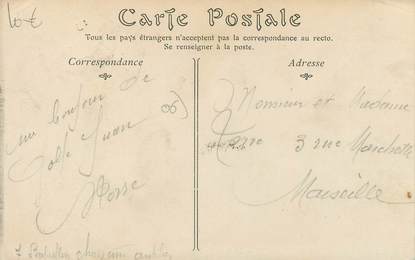 10€
Carte Postale
Tous les pays étrangers n'acceptent pas la correspondance au recto.
Se renseigner à la poste.
Correspondance
Adresse
un bonjour de
Golfe Juan
(06)
Monsieur et Madame
3 rue
Marseille